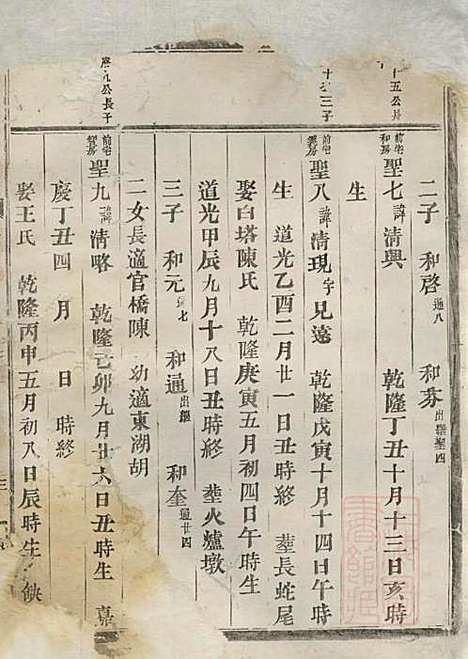 二子 和啓 通八 和芬 出繼聖四
十五公
前宅和房 聖七 諱 清興 乾隆丁丑十月十三日亥時
生
十三子
前宅 聖八 諱 清現 字 見遠 乾隆戊寅十月十四日午時
生 道光乙酉二月廿一日丑時終 葬長蛇尾
娶白塔陳氏 乾隆庚寅五月初四日午時生
道光甲辰九月十八日丑時終 葬火爐墩
三子 和元 通七 和通 出繼 和奎 通廿四
二女長適官橋陳 幼適東湖胡
公長子
前宅 聖九 諱 清略 乾隆己卯九月廿六日丑時生 嘉
慶丁丑四月 日 時終
娶王氏 乾隆丙申五月初八日辰時生 缺